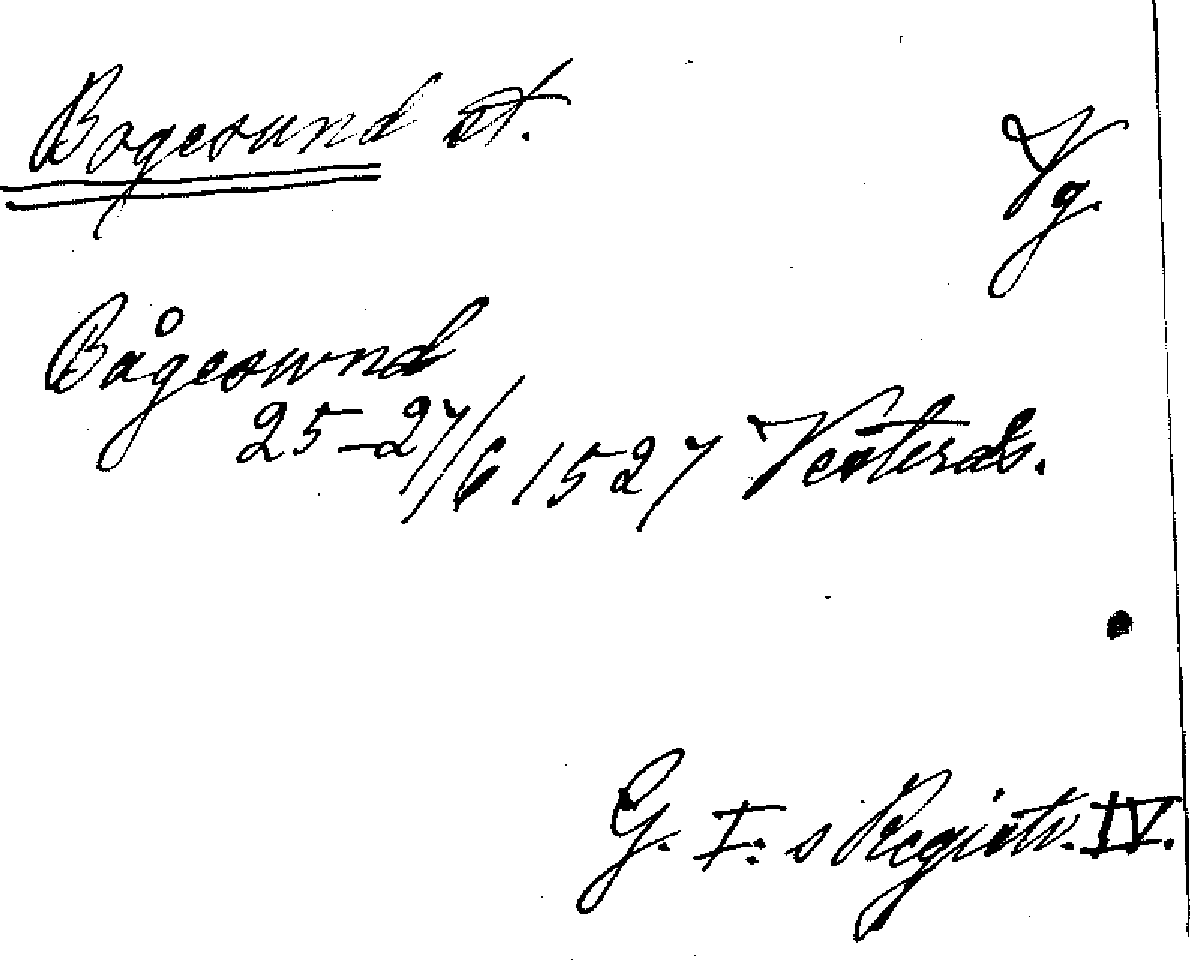 Bogesund st. Vg.
Bågesund
25-27/6 1527 Vesterås.
G. I:s Registr. IV.